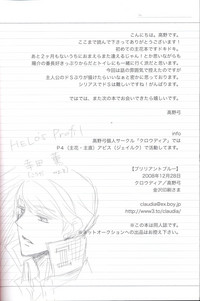 こんにちは、高野です。
ここまで読んで下さってありがとうございます!
初めての主花本でドキドキ。
あと2ヶ月もないうちにおまえらまた逢えるじゃん!とか思いながらも
陽介の番長好きっぷりからだとトイレにも一緒に行く仲だと思います。
今回は話の雰囲気で控えましたので
主人公のドSぶりが描けたらいいなぁと常に思っております。
シリアスでドSは難しいですね!がんばります。
ではでは、また次の本でお会いできたら嬉しいです。
高野弓
info
高野弓個人サークル『クロウディア』では
P4(主花・主直)アビス(ジェイルク)で活動してます。
【ブリリアントブルー】
2008年12月28日
クロウディア/高野弓
金沢印刷さま
claudia@es.boy.jp
http://www3.to/claudia/
※この本は同人誌です。
※ネットオークションへの出品はお控え下さい。